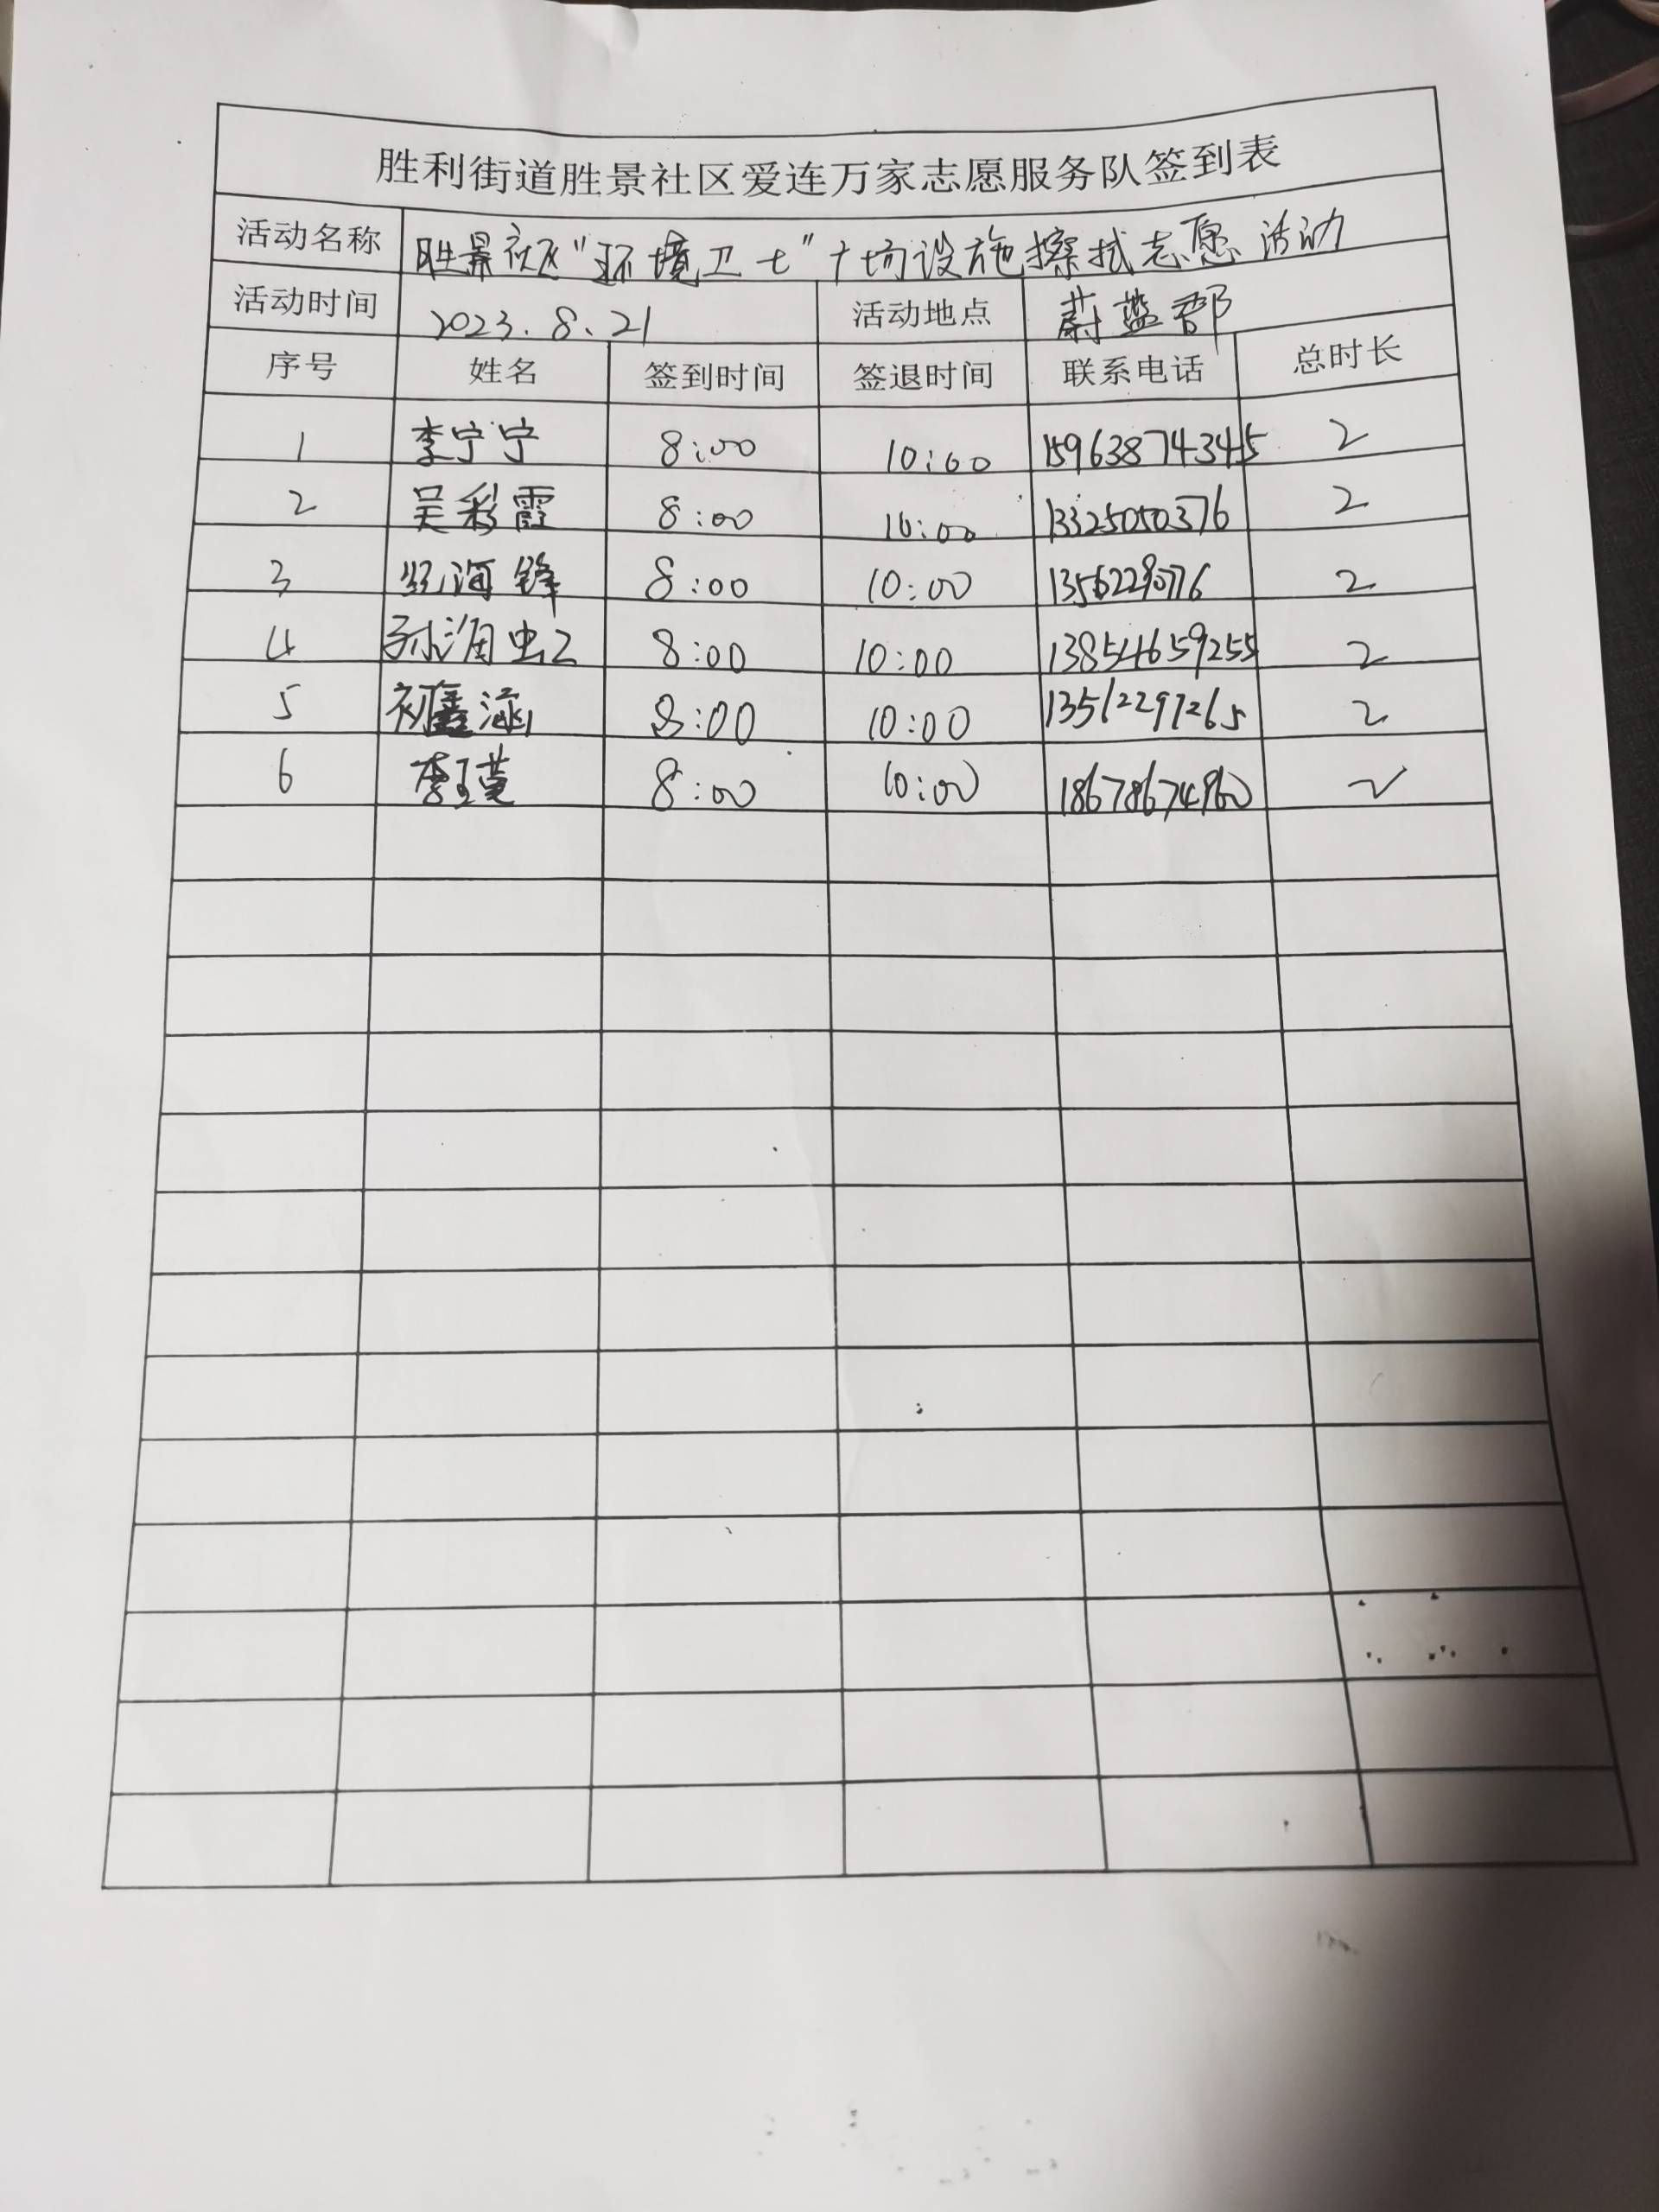 胜利街道胜景社区爱连万家志愿服务队签到表
活动名称 胜景社区“环境卫士”广场设施擦拭志愿活动
活动时间 2023.8.21 活动地点 蔚蓝郡
序号 姓名 签到时间 签退时间 联系电话 总时长
1 李宁宁 8:00 10:00 15963874345 2
2 吴彩霞 8:00 10:00 13325050376 2
3 海锋 8:00 10:00 2
4 孙海 8:00 10:00 13854659255 2
5 初鑫涵 8:00 10:00 13562297265 2
6 李玉莹 8:00 10:00 18678674960 2